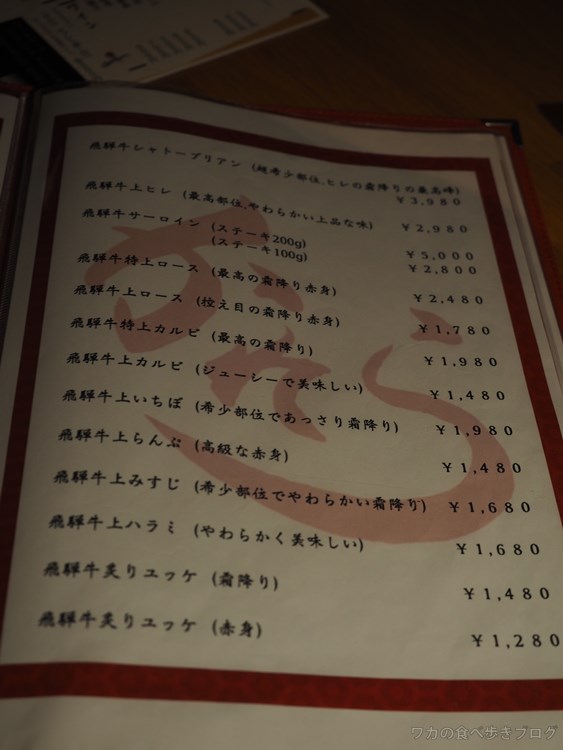 飛騨牛シャトーブリアン (超希少部位、ヒレの霜降りの最高峰)
¥3,980
飛騨牛上ヒレ (最高部位、やわらかい上品な味) ¥2,980
飛騨牛サーロイン (ステーキ200g) ¥5,000
(ステーキ100g) ¥2,800
飛騨牛特上ロース (最高の霜降り赤身) ¥2,480
飛騨牛上ロース (控え目の霜降り赤身) ¥1,780
飛騨牛特上カルビ (最高の霜降り) ¥1,980
飛騨牛上カルビ (ジューシーで美味しい) ¥1,480
飛騨牛上いちぼ (希少部位であっさり霜降り) ¥1,980
飛騨牛上らんぷ (高級な赤身) ¥1,480
飛騨牛上みすじ (希少部位でやわらかい霜降り) ¥1,680
飛騨牛上ハラミ (やわらかく美味しい) ¥1,680
飛騨牛炙りユッケ (霜降り) ¥1,480
飛騨牛炙りユッケ (赤身) ¥1,280
ワカの食べ歩きブログ